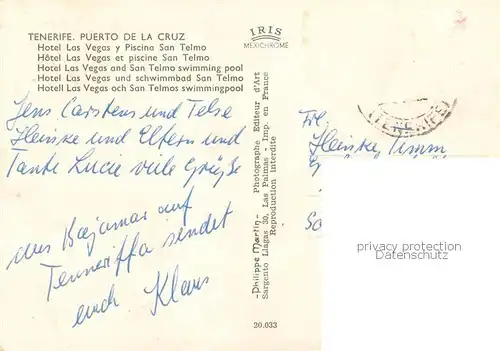 TENERIFE. PUERTO DE LA CRUZ
Hotel Las Vegas y Piscina San Telmo
Hôtel Las Vegas et piscine San Telmo
Hotel Las Vegas and San Telmo swimming pool
Hotel Las Vegas und schwimmbad San Telmo
Hotell Las Vegas och San Telmos swimmingpool
IRIS
MEXICHROME
Jens Carstens und Telse
Heinske und Eltern und
Tante Lucie viele Grüße
aus Bajamar auf
Tenneriffa sendet
euch Klaus
-Philippe Martin- Photographe Editeur d'Art
Sargento Llagas 30, Las Palmas - Imp. en France
Reproduction Interdite
20.033
(TENERIFE)
Frl.
Heinske Timm
privacy protection
Datenschutz